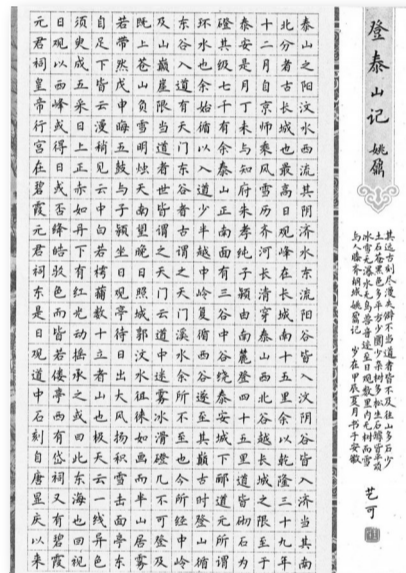 登泰山记 姚鼐
泰山之阳汶水西流其阴济水东流阳谷皆入汶阴谷皆入济当其南
北分者古长城也最高日观峰在长城南十五里余以乾隆三十九年
十二月自京师乘风雪历齐河长清穿泰山西北谷越长城之限至于
泰安是月丁未与知府朱孝纯子颍由南麓登四十五里道皆砌石为
磴其级七千有余泰山正南面有三谷中谷绕泰安城下郦道元所谓
环水也余始循以入道少半越中岭复循西谷遂至其巅古时登山循
东谷入道有天门东谷者古谓之天门溪水余所不至也今所经中岭
及山巅崖限当道者世皆谓之天门云道中迷雾冰滑磴几不可登及
既上苍山负雪明烛天南望晚日照城郭汶水徂徕如画而半山居雾
若带然戊申晦五鼓与子颍坐日观亭待日出大风扬积雪击面亭东
自足下皆云漫稍见云中白若樗蒱数十立者山也极天云一线异色
须臾成五采日上正赤如丹下有红光动摇承之或曰此东海也回视
日观以西峰或得日或否绛皓驳色而皆若偻亭西有岱祠又有碧霞
元君祠皇帝行宫在碧霞元君祠东是日观道中石刻自唐显庆以来
其远古刻尽漫失僻不当道者皆不及往山多石少
土石苍黑色多平方少圜少杂树多松生石罅皆平顶
冰雪无瀑水无鸟兽音迹至日观数里内无树而雪
与人膝齐桐城姚鼐记 甲辰夏月书于安徽
艺可